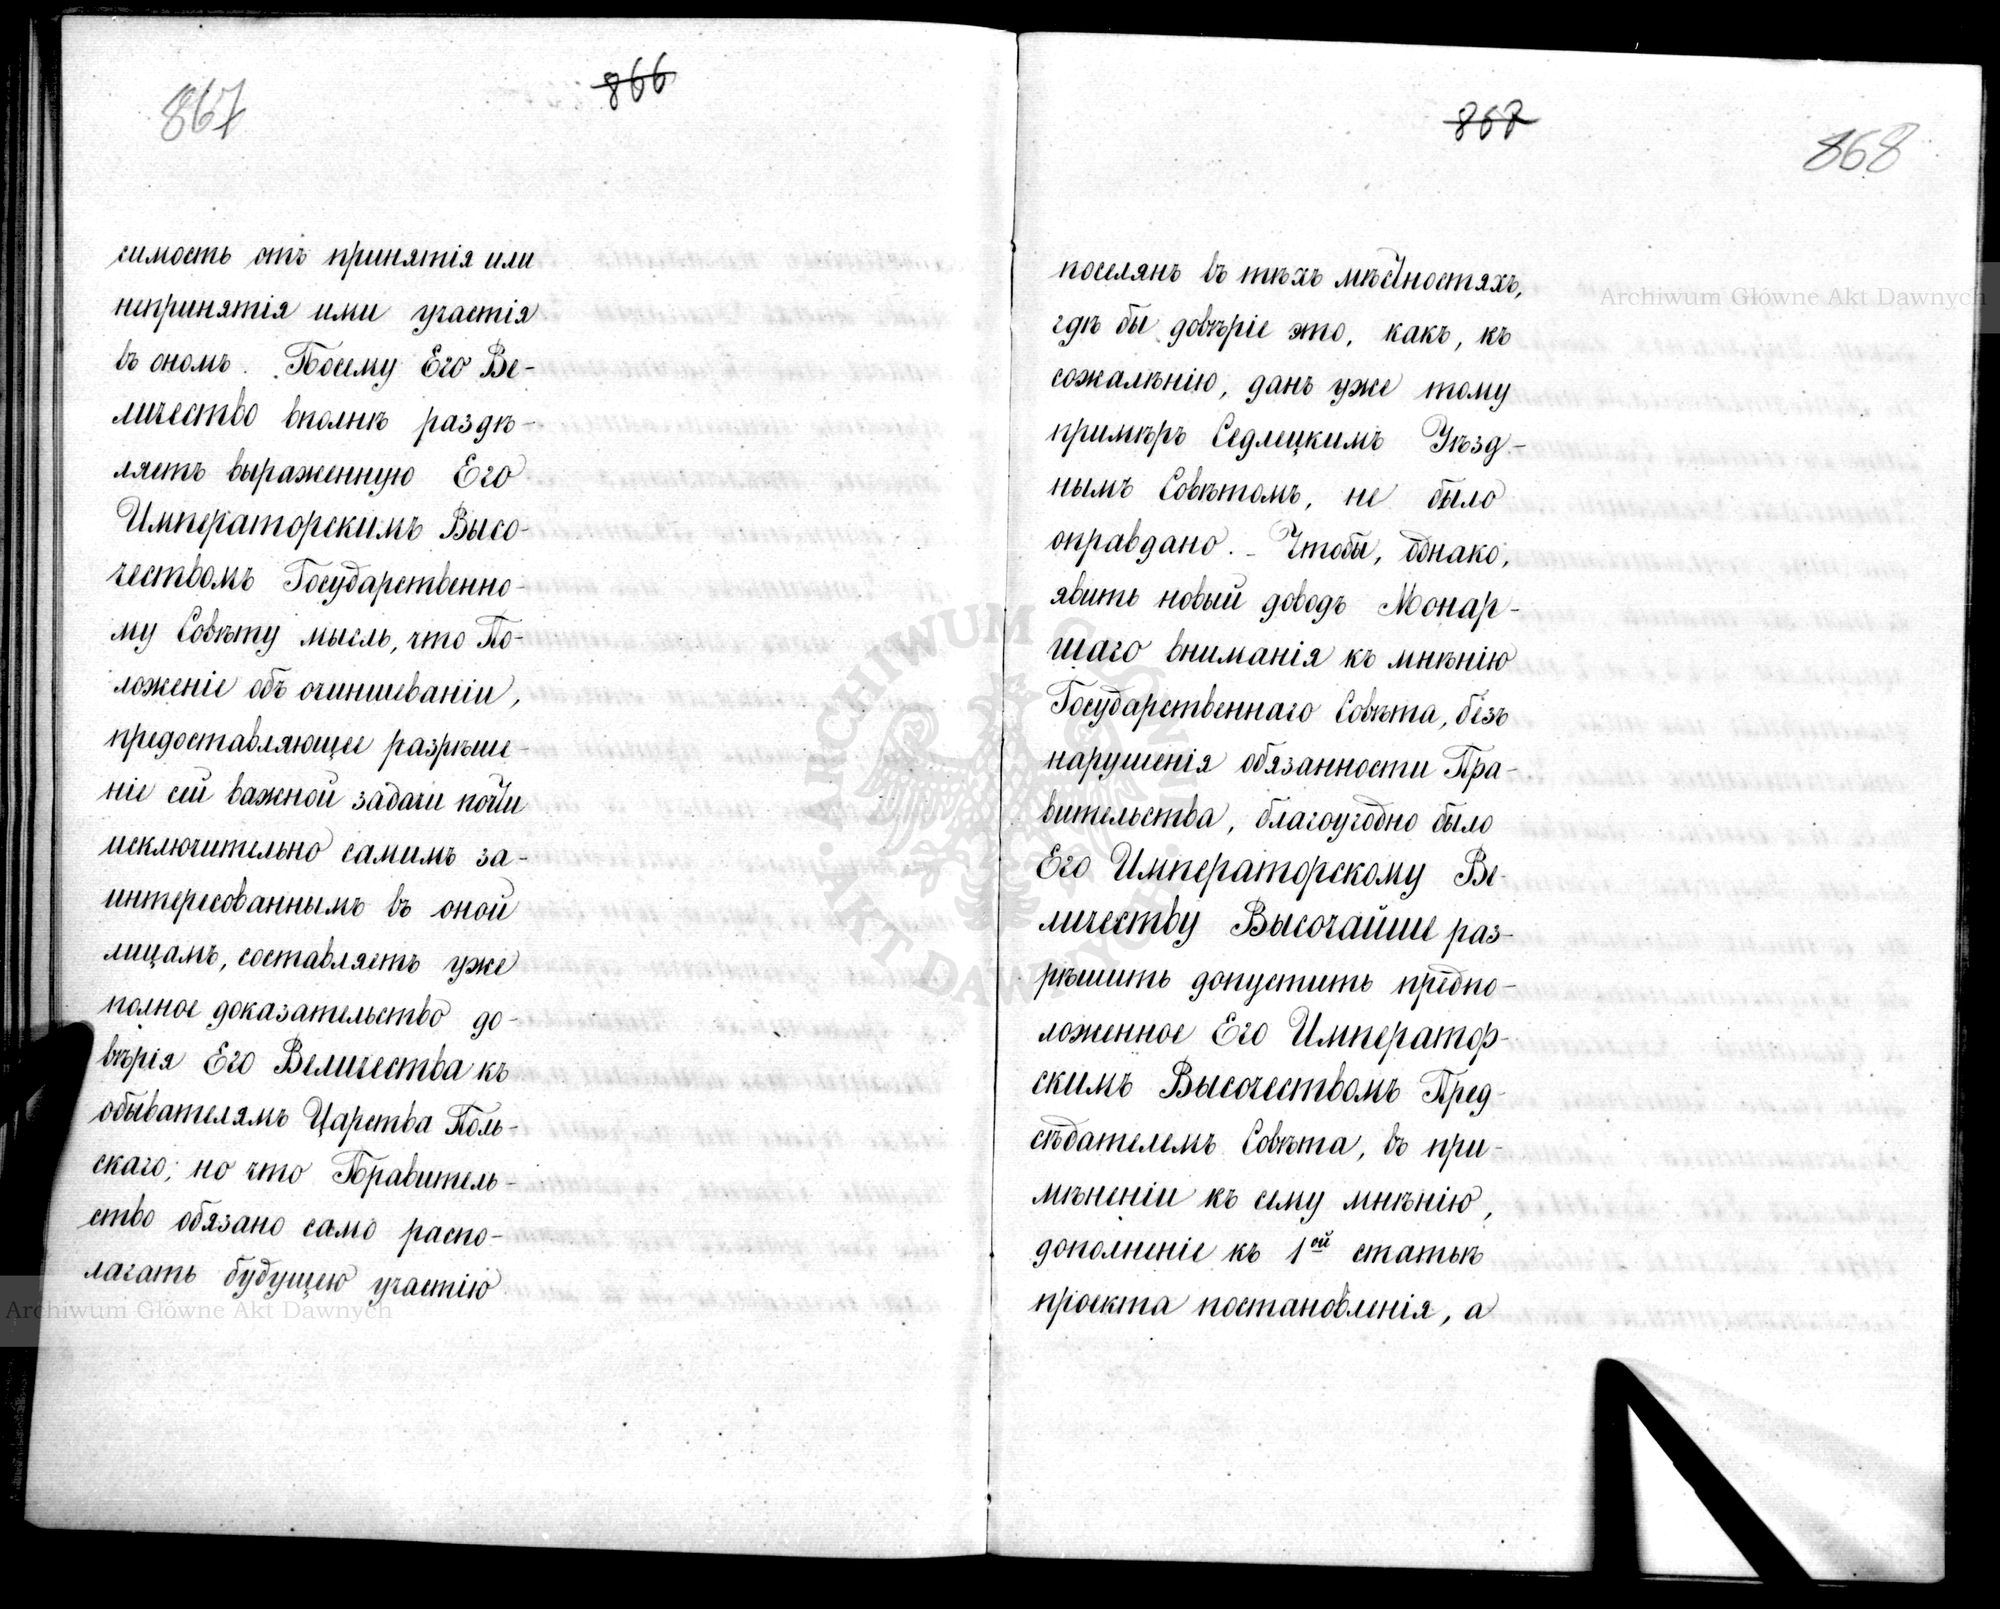 867
866
симость отъ принятія или
непринятія ими участія
въ ономъ. Посему Его Ве-
личество вполнѣ раздѣ-
ляетъ выраженную Его
Императорскимъ Высо-
чествомъ Государственно-
му Совѣту мысль, что По-
ложеніе объ очиншеваніи,
предоставляющее разрѣше-
ніе сей важной задачи почти
исключительно самимъ за-
интересованнымъ въ оной
лицамъ, составляетъ уже
полное доказательство до-
вѣрія Его Величества къ
обывателямъ Царства Поль-
скаго; но что Правитель-
ство обязано само распо-
лагать будущею участію
867
868
поселянъ въ тѣхъ мѣстностяхъ,
гдѣ бы довѣріе это, какъ, къ
сожалѣнію, данъ уже тому
примѣръ Седлецкимъ Уѣзд-
нымъ Совѣтомъ, не было
оправдано. - Чтобы, однако,
явить новый доводъ Монар-
шаго вниманія къ мнѣнію
Государственнаго Совѣта, безъ
нарушенія обязанности Пра-
вительства, благоугодно было
Его Императорскому Ве-
личеству Высочайше раз-
рѣшить допустить предпо-
ложенное Его Император-
скимъ Высочествомъ Пред-
сѣдателемъ Совѣта, въ при-
мѣненіи къ сему мнѣнію,
дополненіе къ 1ой статьѣ
проекта постановленія, а
Archiwum Główne Akt Dawnych
Archiwum Główne Akt Dawnych
ARCHIWUM GŁÓWNE AKT DAWNYCH